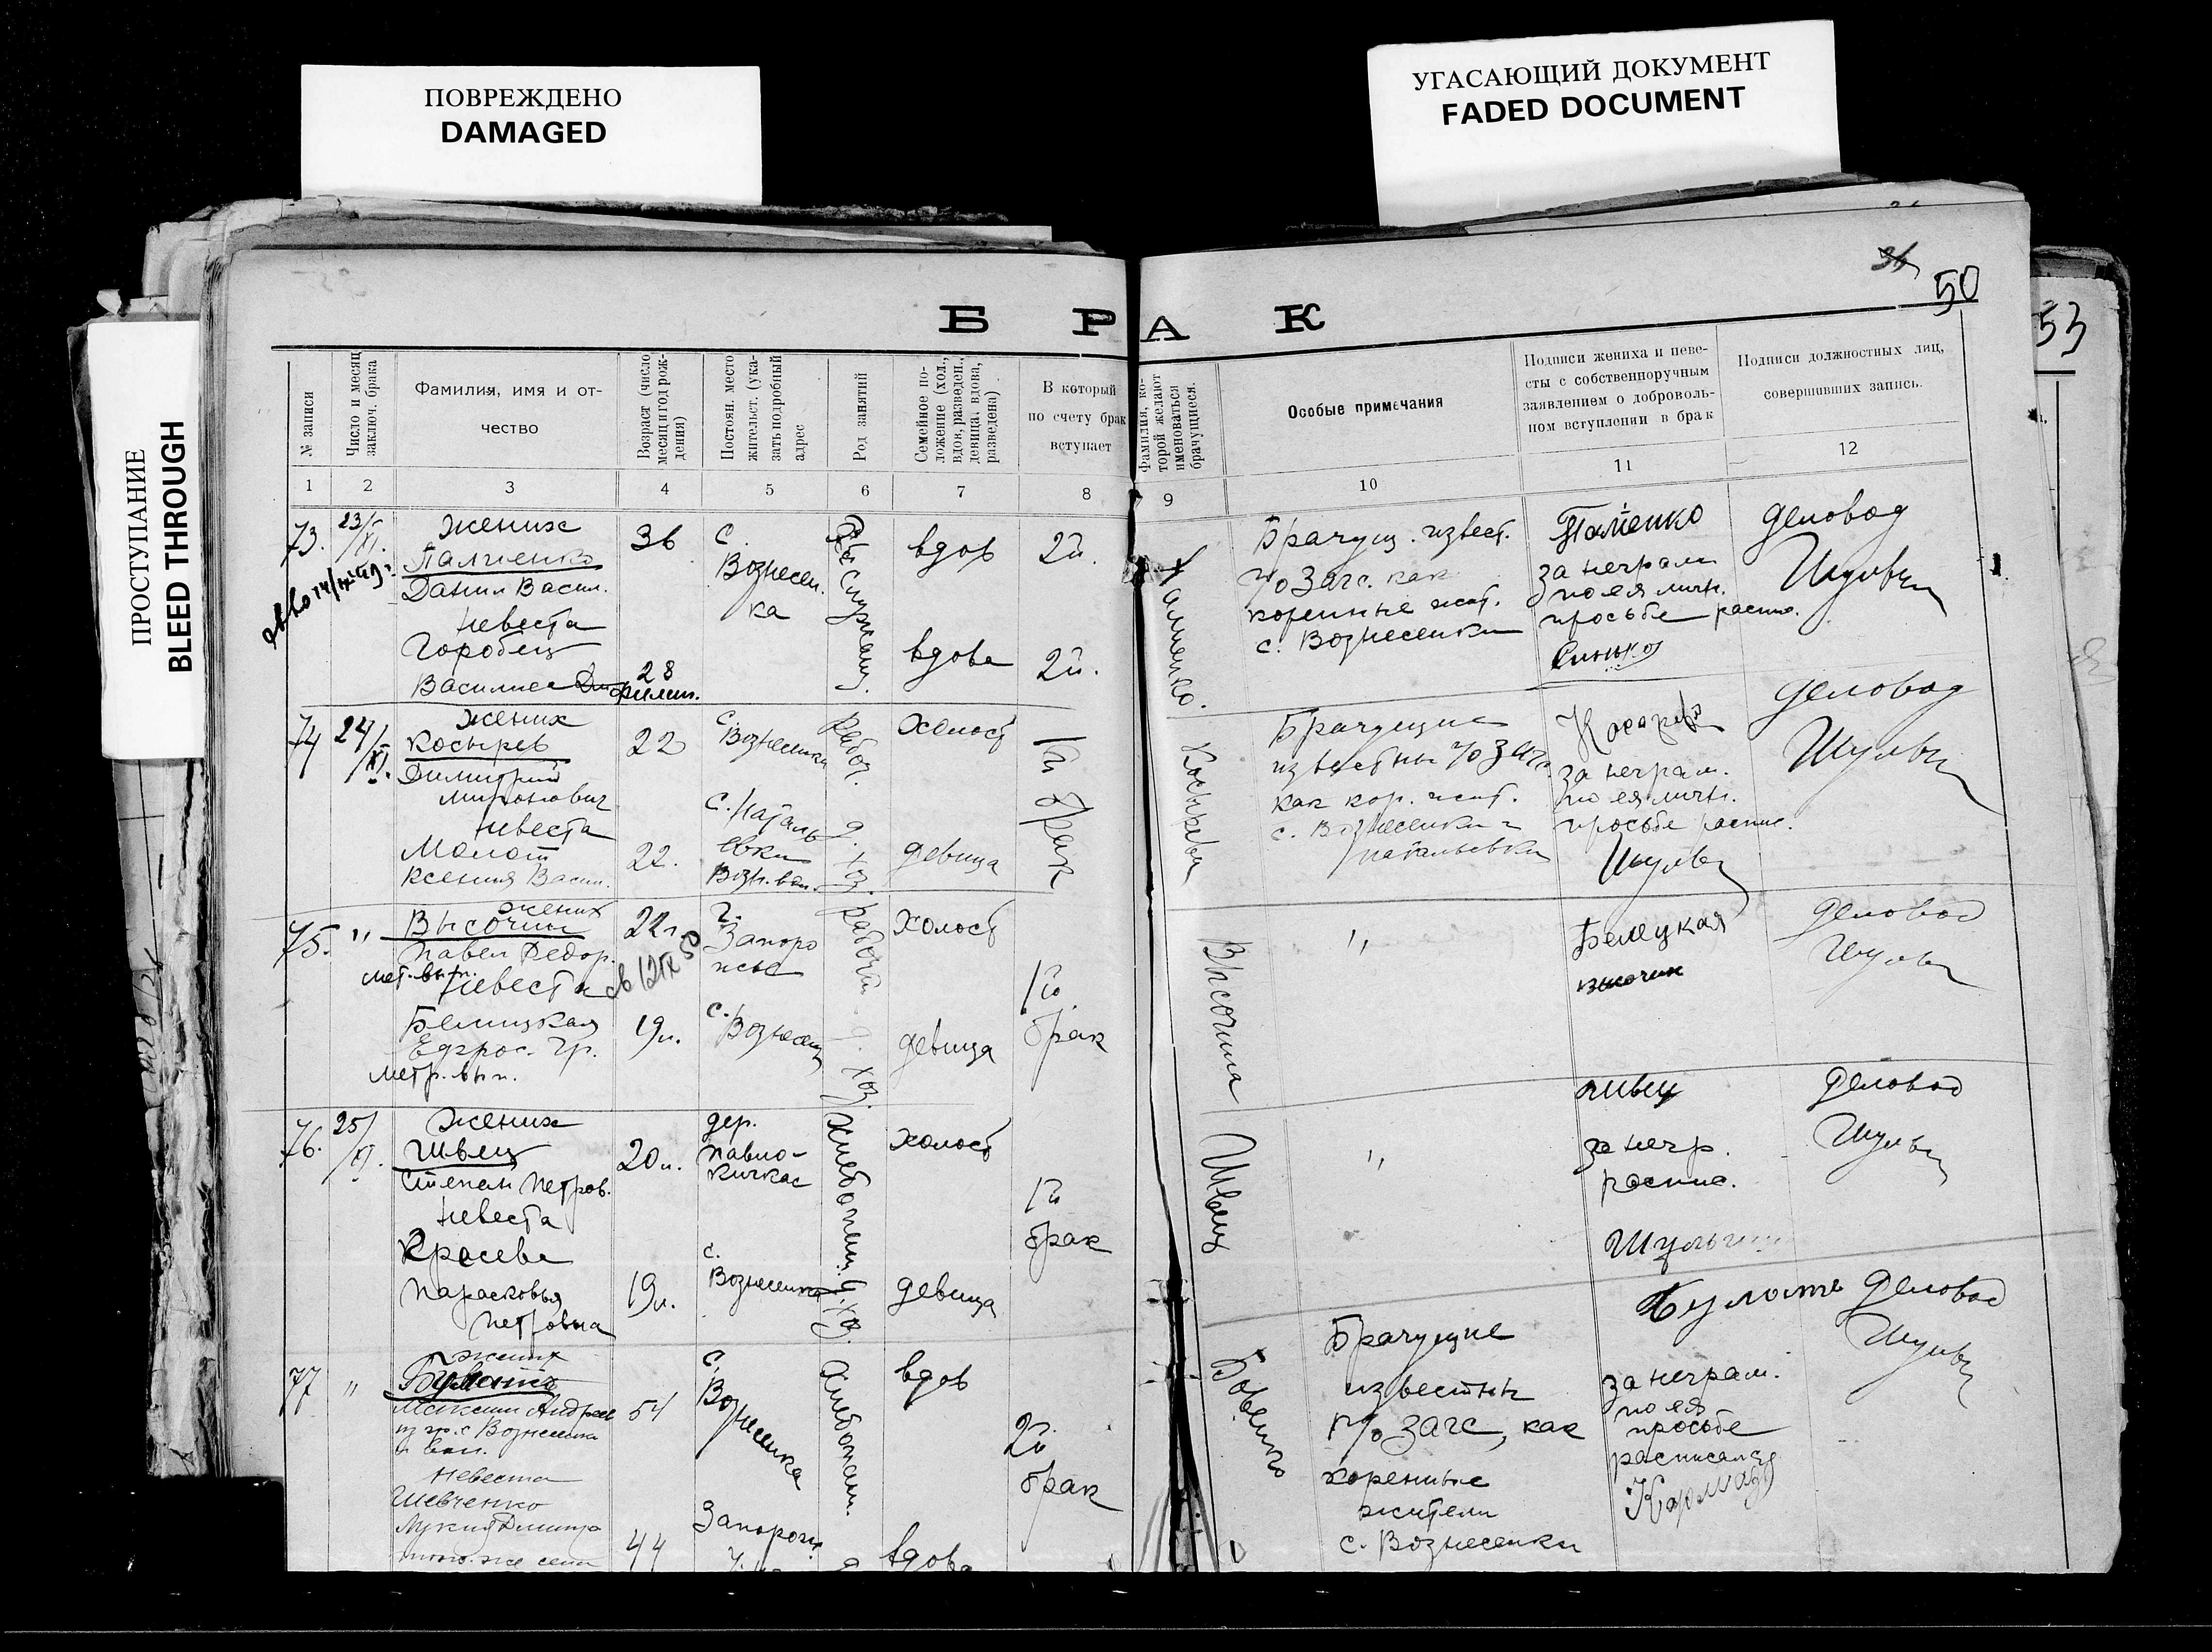 ПОВРЕЖДЕНО
DAMAGED
УГАСАЮЩИЙ ДОКУМЕНТ
FADED DOCUMENT
ПРОСТУПАНИЕ
BLEED THROUGH
36
50
53
БРАК
№ записи
Число и месяц заключ. брака
Фамилия, имя и от-
чество
Возраст (число месяц и год рож-
дения)
Постоян. место
жительст. (ука-
зать подробный
адрес
Род занятий
Семейное по-
ложение (хол.,
вдов, разведен.,
девица, вдова,
разведена)
В который
по счету брак
вступает
Фамилия, ко-
торой желают
именоваться
брачущиеся.
Особые примечания
Подписи жениха и неве-
сты с собственноручным
заявлением о доброволь-
ном вступлении в брак
Подписи должностных лиц,
совершивших запись.
1 2 3 4 5 6 7 8 9 10 11 12
73.
23/XI.
жених
Данил Васил.
невеста
Горобец
Василиса
36
28
с.
Вознесен.
ка
вдов
2й.
вдова
2й.
Брачущ. извест.
п/о Загс. как
коренные жит.
с. Вознесенки
за неграм.
по ея личн.
просьбе распис.
деловод
74
24/XI.
жених
Косырев
Димитрий
Миронович
невеста
Молот
Ксения Васил.
22
22.
с.
Вознесенка
с. Наталь
евки
Возн. вол.
рабоч.
д. хоз.
холост
девица
1й брак
Косыревы
Брачущие
известны п/о Загс.
как кор. жит.
с. Вознесенки и
Натальевки
за неграм.
по ея личн.
просьбе распис.
деловод
75.
"
жених
Высочин
Павел Федор.
мет. вып.
невеста
Ефрос. Гр.
метр. вып.
22л.
19л.
г.
Запоро
жье
с.
Вознесен
рабочий
д. хоз.
холост
девица
1й
брак
Высочина
"
Белецкая
высочин
деловод
76.
25/XI.
жених
Швец
Степан Петров.
невеста
Красева
Парасковья
Петровна
20л.
19л.
дер.
Павло-
кичкас
с.
Вознесенка
хлебопаш.
д. хоз.
холост
девица
1й
брак
Швец
"
швец
за негр.
распис.
деловод
77
"
жених
Максим Андреев
из гр. с Вознесенки
невеста
Шевченко
того же села
54
44
с.
Вознесенка
Запорож.
хлебопаш.
вдов
вдова
2й
брак
Брачущие
известны
п/о ЗАГС, как
коренные
жители
с. Вознесенки
за неграм.
по ея
просьбе
расписался
деловод